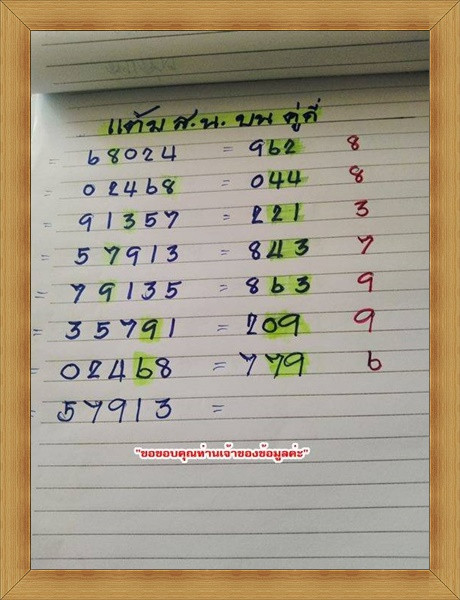 แต้ม ส.น. บน คู่คี่
= 68024 = 962 8
= 02468 = 044 8
= 91357 = 221 3
= 57913 = 843 7
= 79135 = 863 9
= 35791 = 209 9
= 02468 = 779 6
= 57913 =
"ขอขอบคุณท่านเจ้าของข้อมูลค่ะ"